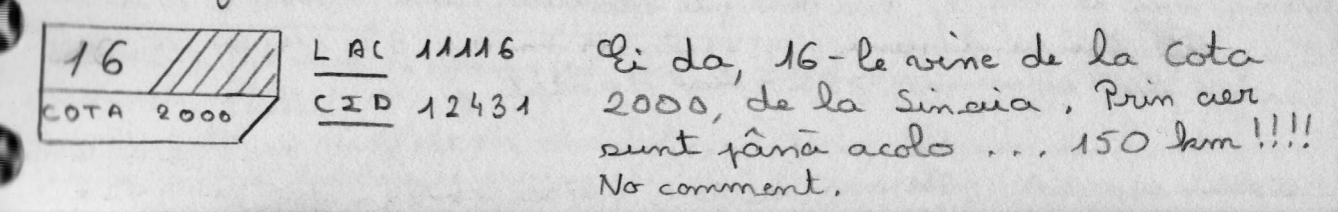 16
COTA 2000
LAC 11116
CID 12431
Ei da, 16-le vine de la Cota
2000, de la Sinaia. Prin aer
sunt până acolo ... 150 km!!!!
No comment.